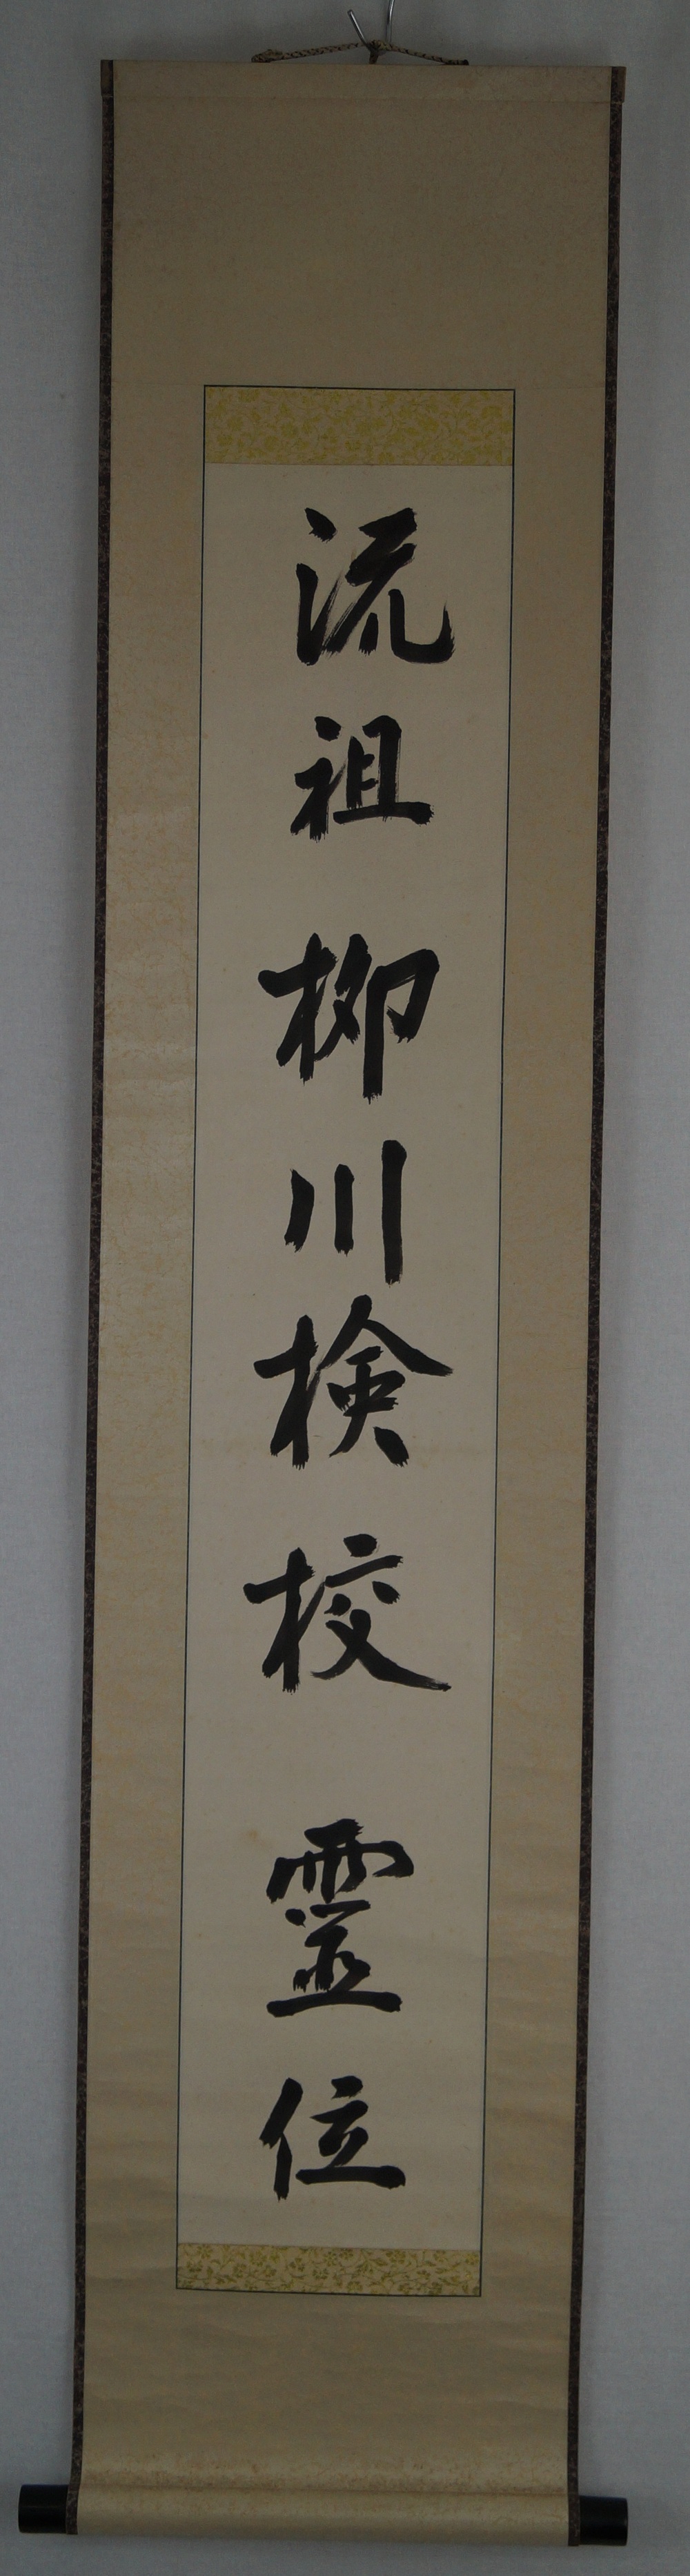 流祖柳川検校靈位